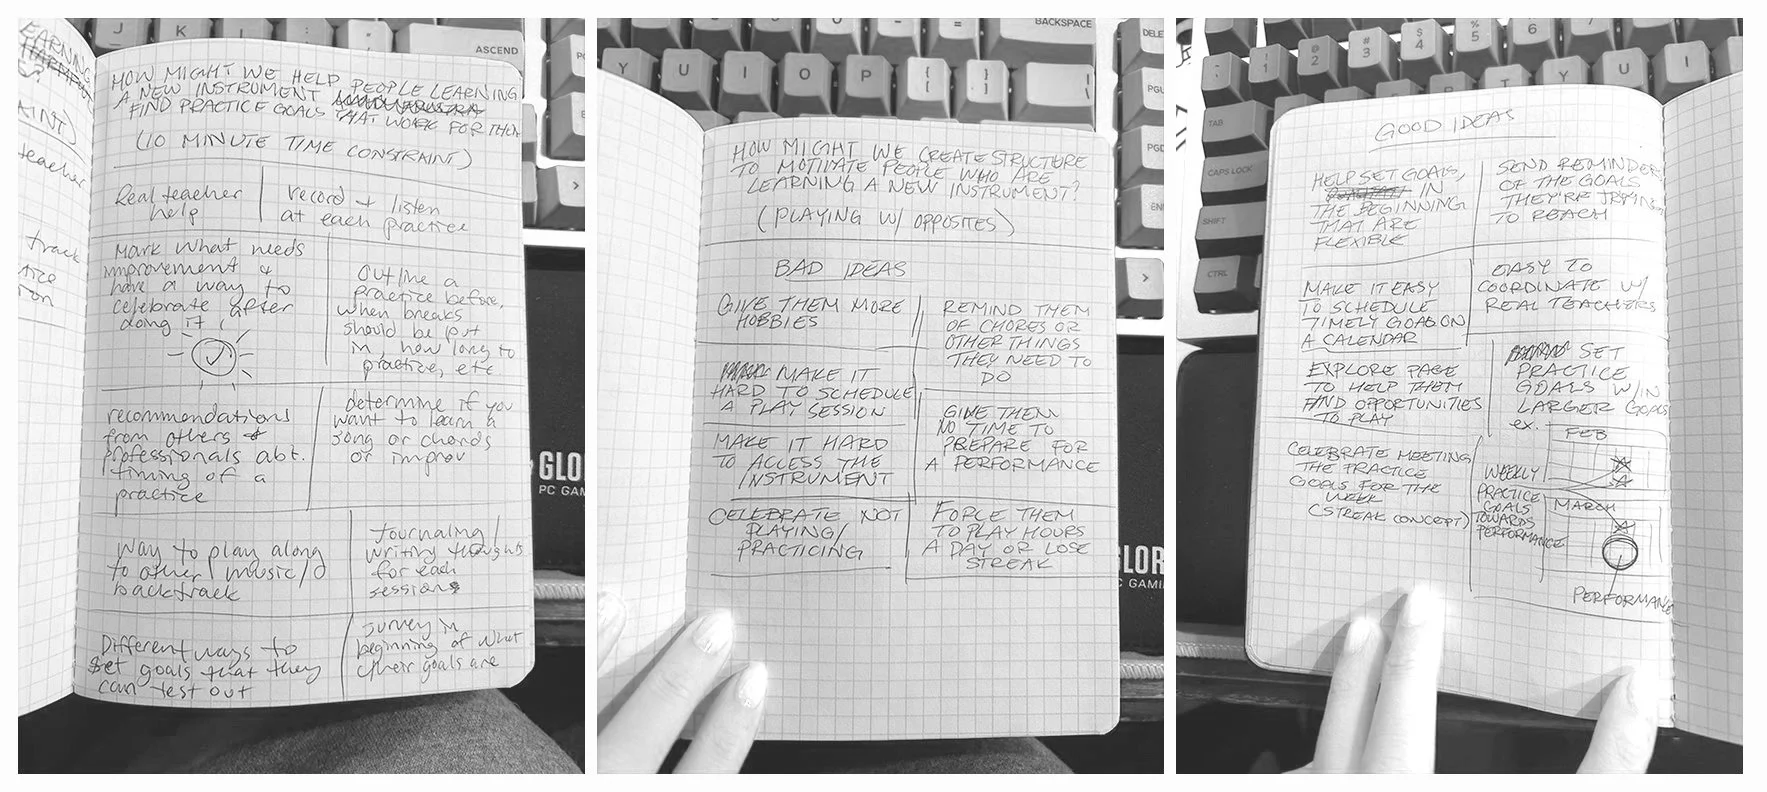 EARNING
?
AINT)
teacher
track
tice
ion
J K L : "
ASCEND
HOW MIGHT WE HELP PEOPLE LEARNING
A NEW INSTRUMENT
FIND PRACTICE GOALS THAT WORK FOR THEM
(10 MINUTE TIME CONSTRAINT)
Real teacher
help
record + listen
at each practice
Mark what needs
improvement +
have a way to
celebrate after
doing it
outline a
practice before,
when breaks
should be put
in, how long to
practice, etc
recommendations
from others +
professionals abt.
timing of a
practice
determine if you
want to learn a
song or chords
or improv
way to play along
to other music/
backtrack
Journaling/
writing thoughts
for each
session
Different ways to
set goals that they
can test out
survey in
beginning of what
their goals are
GLO
PC GAM
BACKSPACE
DELE
Y U I O P { [ } ] \
PGU
PGD
EN
HOW MIGHT WE CREATE STRUCTURE
TO MOTIVATE PEOPLE WHO ARE
LEARNING A NEW INSTRUMENT?
(PLAYING W/ OPPOSITES)
BAD IDEAS
GIVE THEM MORE
HOBBIES
REMIND THEM
OF CHORES OR
OTHER THINGS
THEY NEED TO
DO
MAKE IT
HARD TO SCHEDULE
A PLAY SESSION
GIVE THEM
NO TIME TO
PREPARE FOR
A PERFORMANCE
MAKE IT HARD
TO ACCESS THE
INSTRUMENT
CELEBRATE NOT
PLAYING/
PRACTICING
FORCE THEM
TO PLAY HOURS
A DAY OR LOSE
STREAK
GLOR
PC GAMI
! 1 @ 2 # 3 $ 4 % 5 6 7
TAB
T Y U I
CAPS LOCK
SHIFT
CTRL
GOOD IDEAS
HELP SET GOALS,
IN
THE BEGINNING
THAT ARE
FLEXIBLE
SEND REMINDERS
OF THE GOALS
THEY'RE TRYING
TO REACH
MAKE IT EASY
TO SCHEDULE
TIMELY GOALS ON
A CALENDAR
EASY TO
COORDINATE W/
REAL TEACHERS
EXPLORE PAGE
TO HELP THEM
FIND OPPORTUNITIES
TO PLAY
SET
PRACTICE
GOALS W/IN
LARGER GOALS
ex.
FEB
CELEBRATE MEETING
THE PRACTICE
GOALS FOR THE
WEEK
(STREAK CONCEPT)
WEEKLY
PRACTICE
GOALS
TOWARDS
PERFORMANCE
MARCH
PERFORMANCE